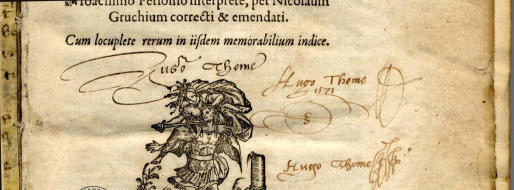 Ioachimo Perionio interprete, per Nicolaum
Gruchium correcti & emendati.
Cum locuplete rerum in iisdem memorabilium indice.
Hugo Thome
Hugo Thome
1571
§
Hugo Thome